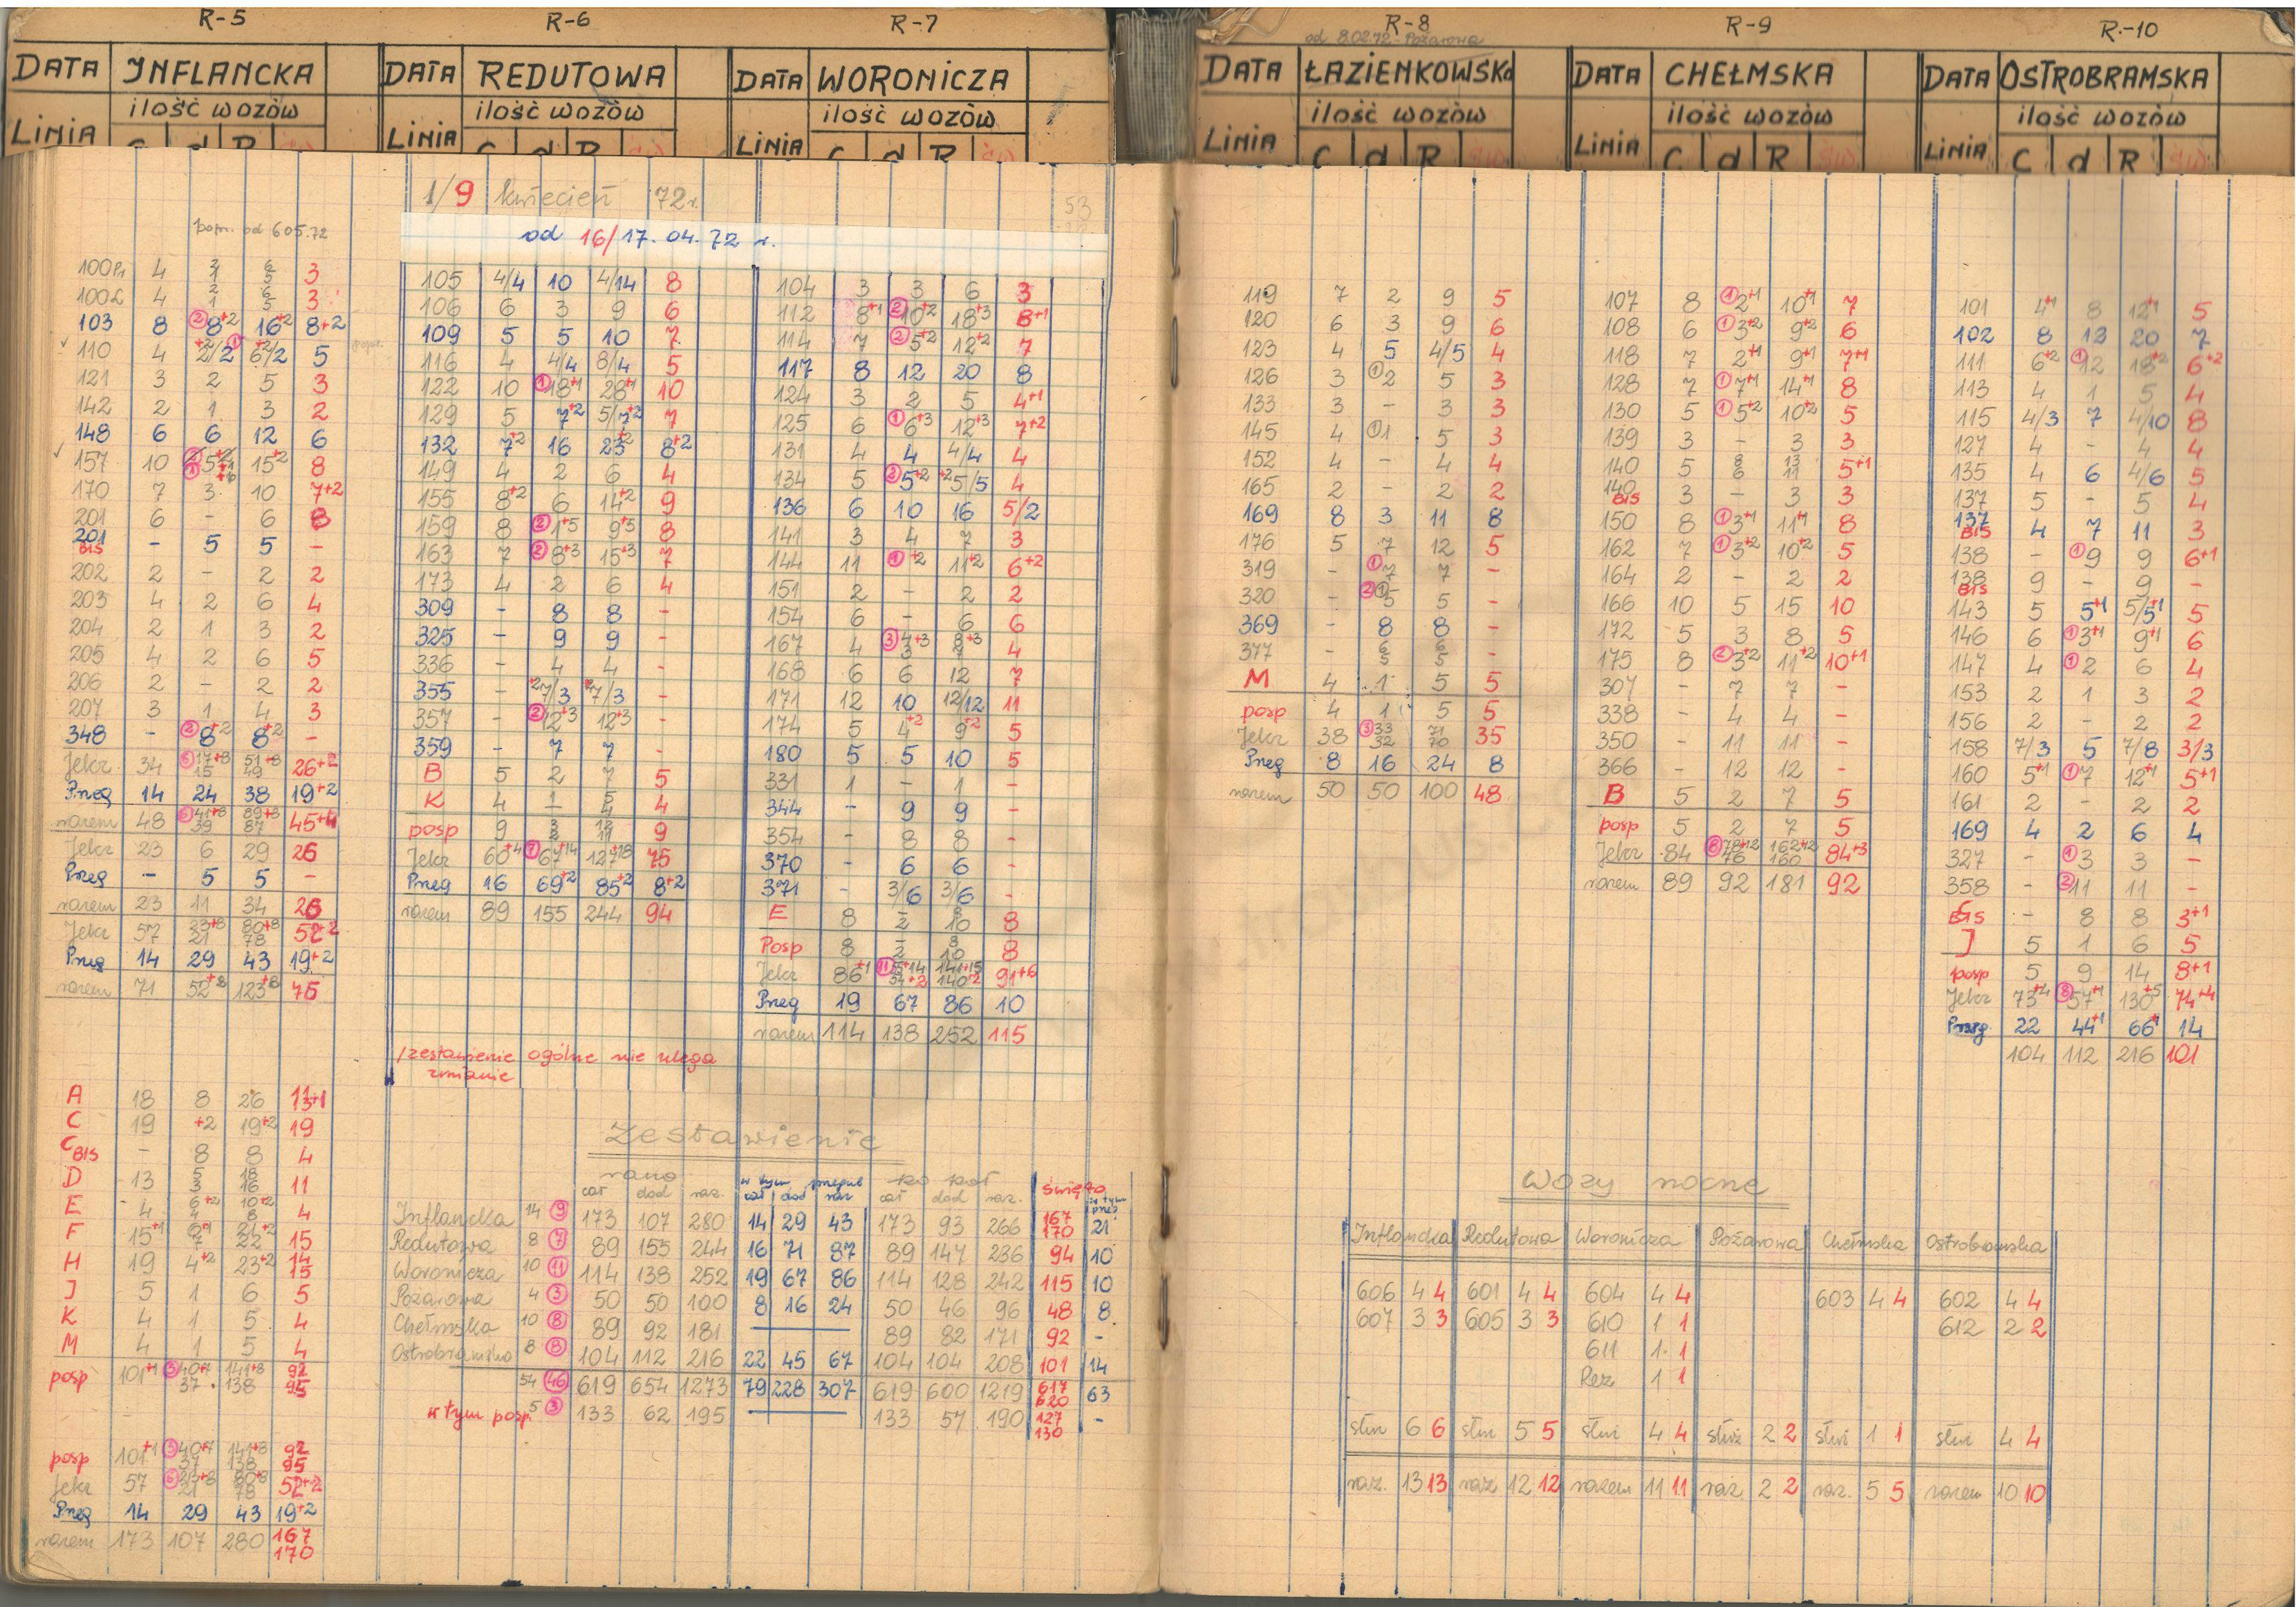 R-5 R-6 R-7 R-8 R-9 R.-10
od 8.02.72 - Pożarowa
DATA INFLANCKA DATA REDUTOWA DATA WORONICZA DATA ŁAZIENKOWSKA DATA CHEŁMSKA DATA OSTROBRAMSKA
ilość wozów ilość wozów ilość wozów ilość wozów ilość wozów ilość wozów
LINIA C d R św. LINIA C d R św. LINIA C d R św. LINIA C d R św. LINIA C d R św. LINIA C d R św.
1/9 kwiecień 72r. 53
popr. od 6.05.72
od 16/17.04.72 r.
100Pr 4 3
100Ł 4 3
103 8 ② 8+2 16+2 8+2
110 4 5
121 3 2 5 3
142 2 1 3 2
148 6 6 12 6
157 10 15+2 8
170 7 3 10 7+2
201 6 - 6 8
201 BIS - 5 5 -
202 2 - 2 2
203 4 2 6 4
204 2 1 3 2
205 4 2 6 5
206 2 - 2 2
207 3 1 4 3
348 - ② 8+2 8+2 -
Jelcz 34 ⑤ 17+8 15 51+8 49 26+2
Przeg 14 24 38 19+2
razem 48 ⑤ 41+8 39 89+8 87 45+4
Jelcz 23 6 29 26
Przeg - 5 5 -
razem 23 11 34 26
Jelcz 57 23+8 21 80+8 78 52+2
Przeg 14 29 43 19+2
razem 71 52+8 123+8 75
A 18 8 26
C 19 +2 19+2 19
C BIS - 8 8 4
D 13 5 3 18 16 11
E 4 6+2 4 10+2 8 4
F 15+1 15
H 19 4+2 23+2 14 15
J 5 1 6 5
K 4 1 5 4
M 4 1 5 4
posp 101+1 ③ 40+7 37 141+8 138 92 95
posp 101+1 ③ 40+7 37 141+8 138 92 95
Jelcz 57 ⑥ 23+8 21 80+8 78 52+2
Przeg 14 29 43 19+2
razem 173 107 280 167 170
105 4/4 10 4/14 8
106 6 3 9 6
109 5 5 10 7
116 4 4/4 8/4 5
122 10 ① 18+1 28+1 10
129 5 7+2 5/7+2 7
132 7+2 16 23+2 8+2
149 4 2 6 4
155 8+2 6 14+2 9
159 8 ② 1+5 9+5 8
163 7 ② 8+3 15+3 7
173 4 2 6 4
309 - 8 8 -
325 - 9 9 -
336 - 4 4 -
355 - +2 7/3 7/3 -
357 - ② 12+3 12+3 -
359 - 7 7 -
B 5 2 7 5
K 4 1 - 5 4 4
posp 9 3 2 12 11 9
Jelcz 60+4 ⑦ 67+14 127+18 75
Przeg 16 69+2 85+2 8+2
razem 89 155 244 94
/zestawienie ogólne nie ulega
zmianie
104 3 3 6 3
112 8+1 ② 10+2 18+3 8+1
114 7 ② 5+2 12+2 7
117 8 12 20 8
124 3 2 5 4+1
125 6 ① 6+3 12+3 7+2
131 4 4 4/4 4
134 5 ② 5+2 +2 5/5 4
136 6 10 16 5/2
141 3 4 7 3
144 11 ① +2 11+2 6+2
151 2 - 2 2
154 6 - 6 6
167 4 ③ 4+3 3 8+3 7 4
168 6 6 12 7
171 12 10 12/12 11
174 5 4+2 9+2 5
180 5 5 10 5
331 1 - 1 -
344 - 9 9 -
354 - 8 8 -
370 - 6 6 -
371 - 3/6 3/6 -
E 8 - 2 8 10 8
Posp 8 - 2 8 10 8
Jelcz 86+1 ⑪ 141+15 140+2 91+6
Przeg 19 67 86 10
razem 114 138 252 115
Zestawienie
rano w tym przegub po poł święto
cał dod raz. cał dod raz cał dod raz. w tym przeg
Inflancka 14 ⑨ 173 107 280 14 29 43 173 93 266 167 170 21
Redutowa 8 ⑦ 89 155 244 16 71 87 89 147 236 94 10
Woronicza 10 ⑪ 114 138 252 19 67 86 114 128 242 115 10
Pożarowa 4 ③ 50 50 100 8 16 24 50 46 96 48 8
Chełmska 10 ⑧ 89 92 181 89 82 171 92 -
Ostrobramska 8 ⑧ 104 112 216 22 45 67 104 104 208 101 14
54 ㊻ 619 654 1273 79 228 307 619 600 1219 617 620 63
w tym posp. 5 ③ 133 62 195 133 57 190 127 130 -
119 7 2 9 5
120 6 3 9 6
123 4 5 4/5 4
126 3 ① 2 5 3
133 3 - 3 3
145 4 ① 1 5 3
152 4 - 4 4
165 2 - 2 2
169 8 3 11 8
176 5 7 12 5
319 - ① 7 7 -
320 - 5 5 -
369 - 8 8 -
377 - 6 5 6 5 -
M 4 1 5 5
posp 4 1 5 5
Jelcz 38 ③ 33 32 71 70 35
Przeg 8 16 24 8
razem 50 50 100 48
107 8 ① 2+1 10+1 7
108 6 ① 3+2 9+2 6
118 7 2+1 9+1 7+1
128 7 ① 7+1 14+1 8
130 5 ① 5+2 10+2 5
139 3 - 3 3
140 5 8 6 13 11 5+1
140 BIS 3 - 3 3
150 8 ① 3+1 11+1 8
162 7 ① 3+2 10+2 5
164 2 - 2 2
166 10 5 15 10
172 5 3 8 5
175 8 ② 3+2 11+2 10+1
307 - 7 7 -
338 - 4 4 -
350 - 11 11 -
366 - 12 12 -
B 5 2 7 5
posp 5 2 7 5
Jelcz 84 ⑧ 78+12 76 162+12 160 84+3
razem 89 92 181 92
101 4+1 8 12+1 5
102 8 12 20 7
111 6+2 ① 12 18+2 6+2
113 4 1 5 4
115 4/3 7 4/10 8
127 4 - 4 4
135 4 6 4/6 5
137 5 - 5 4
137 BIS 4 7 11 3
138 - ① 9 9 6+1
138 BIS 9 - 9 -
143 5 5+1 5/5+1 5
146 6 ① 3+1 9+1 6
147 4 ① 2 6 4
153 2 1 3 2
156 2 - 2 2
158 7/3 5 7/8 3/3
160 5+1 ① 7 12+1 5+1
161 2 - 2 2
169 4 2 6 4
327 - ① 3 3 -
358 - ② 11 11 -
C BIS - 8 8 3+1
J 5 1 6 5
posp 5 9 14 8+1
Jelcz 73+4 ⑧ 57+1 130+5 74+4
Przeg. 22 44+1 66+1 14
104 112 216 101
Wozy nocne
Inflancka Redutowa Woronicza Pożarowa Chełmska Ostrobramska
606 4 4 601 4 4 604 4 4 603 4 4 602 4 4
607 3 3 605 3 3 610 1 1 612 2 2
611 1 1
Rez 1 1
służ 6 6 służ 5 5 służ 4 4 służ 2 2 służ 1 1 służ 4 4
raz. 13 13 raz 12 12 razem 11 11 raz. 2 2 raz. 5 5 razem 10 10